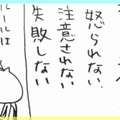 怒られない
注意されない
失敗しない
ルールは